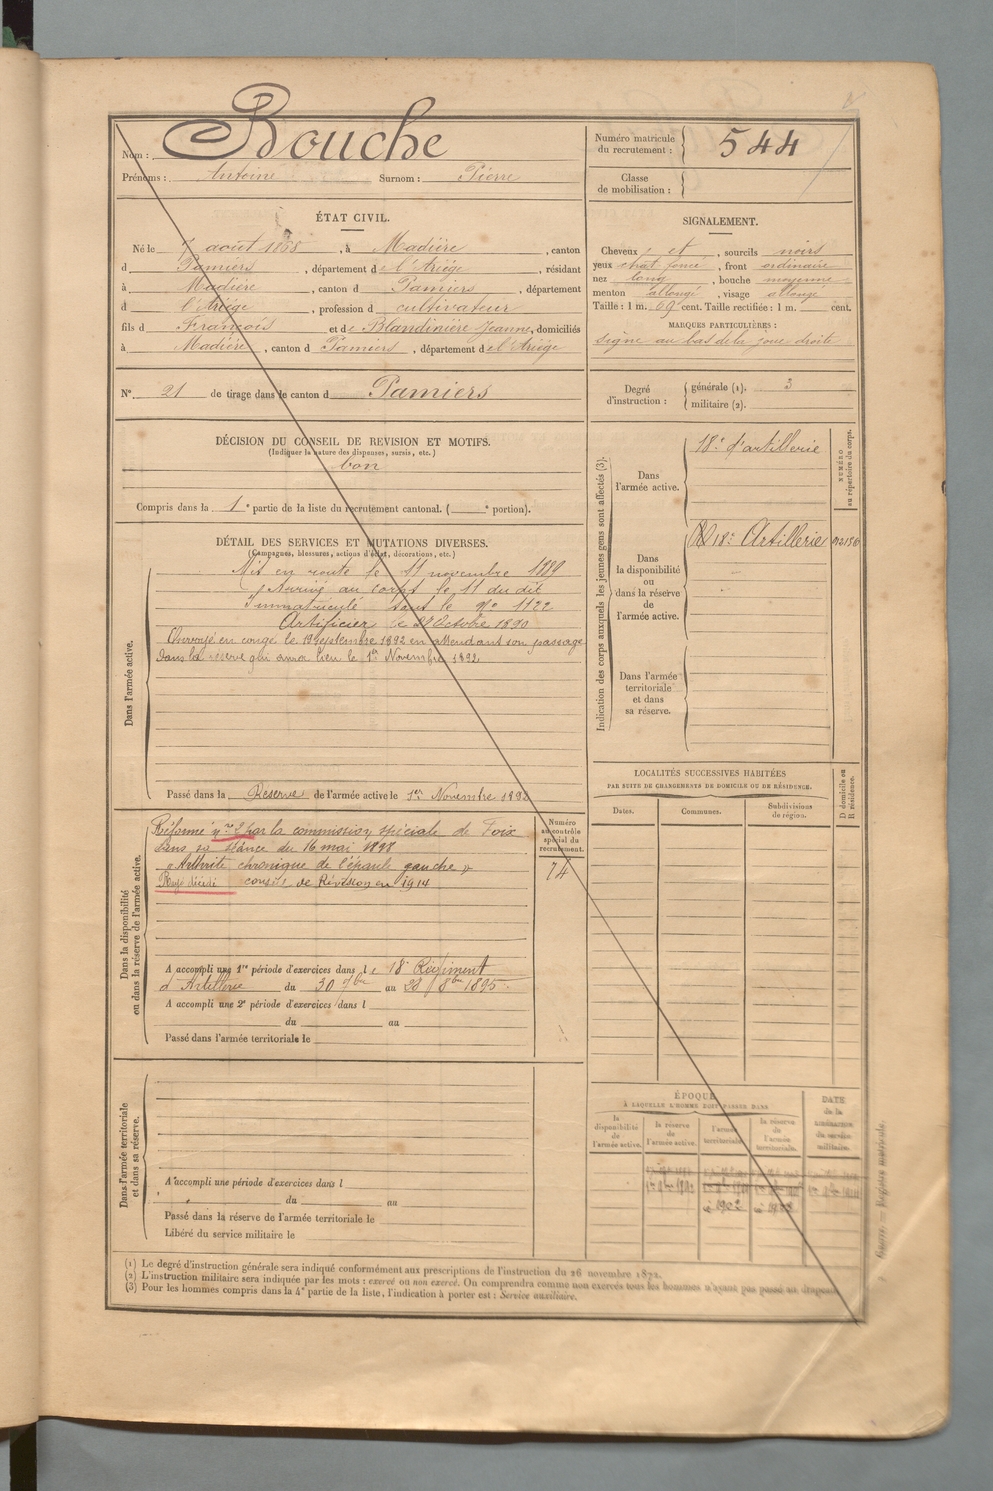 Nom : Bouche
Prénoms : Antoine Surnom : Pierre
Numéro matricule du recrutement : 544
Classe de mobilisation :
ÉTAT CIVIL.
Né le 7 août 1868, à Madière, canton
d Pamiers, département de l'Ariège, résidant
à Madière, canton d Pamiers, département
d l'Ariège, profession d cultivateur
fils d François et de Blandinière Jeanne, domiciliés
à Madière, canton d Pamiers, département de l'Ariège
N° 21 de tirage dans le canton d Pamiers
SIGNALEMENT.
Cheveux et, sourcils noirs
yeux chat foncé, front ordinaire
nez long, bouche moyenne
menton allongé, visage allongé
Taille : 1 m. 69 cent. Taille rectifiée : 1 m. cent.
MARQUES PARTICULIÈRES :
signe au bas de la joue droite
Degré d'instruction : générale (1). 3
militaire (2).
DÉCISION DU CONSEIL DE REVISION ET MOTIFS.
(Indiquer la nature des dispenses, sursis, etc.)
bon
Compris dans la 1e partie de la liste du recrutement cantonal. ( e portion).
DÉTAIL DES SERVICES ET MUTATIONS DIVERSES.
(Campagnes, blessures, actions d'éclat, décorations, etc.)
Dans l'armée active.
Mis en route le 11 novembre 1889
Arrivé au corps le 11 du dit
Immatriculé sous le N° 1122
Artificier le 21 Octobre 1890
Envoyé en congé le 19 septembre 1892 en attendant son passage
dans la réserve qui aura lieu le 1er Novembre 1892
Passé dans la Réserve de l'armée active le 1er Novembre 1892
Indication des corps auxquels les jeunes gens sont affectés (3).
NUMÉRO au répertoire du corps.
Dans l'armée active.
18e d'artillerie
Dans la disponibilité ou dans la réserve de l'armée active.
18e Artillerie
Dans l'armée territoriale et dans sa réserve.
Dans la disponibilité ou dans la réserve de l'armée active.
Réformé n° 2 par la commission spéciale de Foix
dans sa séance du 16 mai 1898
"Arthrite chronique de l'épaule gauche"
conseil de Révision en 1914
Numéro au contrôle spécial du recrutement.
74
A accompli une 1re période d'exercices dans le 18e Régiment
d'Artillerie du 30 7bre au 28 8bre 1895
A accompli une 2e période d'exercices dans l
du au
Passé dans l'armée territoriale le
LOCALITÉS SUCCESSIVES HABITÉES
PAR SUITE DE CHANGEMENTS DE DOMICILE OU DE RÉSIDENCE.
D domicile ou R résidence.
Dates. Communes. Subdivisions de région.
Dans l'armée territoriale et dans sa réserve.
A accompli une période d'exercices dans l
du au
Passé dans la réserve de l'armée territoriale le
Libéré du service militaire le
ÉPOQUE
À LAQUELLE L'HOMME DOIT PASSER DANS
la disponibilité de l'armée active.
la réserve de l'armée active.
l'armée territoriale.
la réserve de l'armée territoriale.
DATE de la libération du service militaire.
(1) Le degré d'instruction générale sera indiqué conformément aux prescriptions de l'instruction du 26 novembre 1872.
(2) L'instruction militaire sera indiquée par les mots : exercé ou non exercé. On comprendra comme non exercés tous les hommes n'ayant pas passé au drapeau.
(3) Pour les hommes compris dans la 4e partie de la liste, l'indication à porter est : Service auxiliaire.